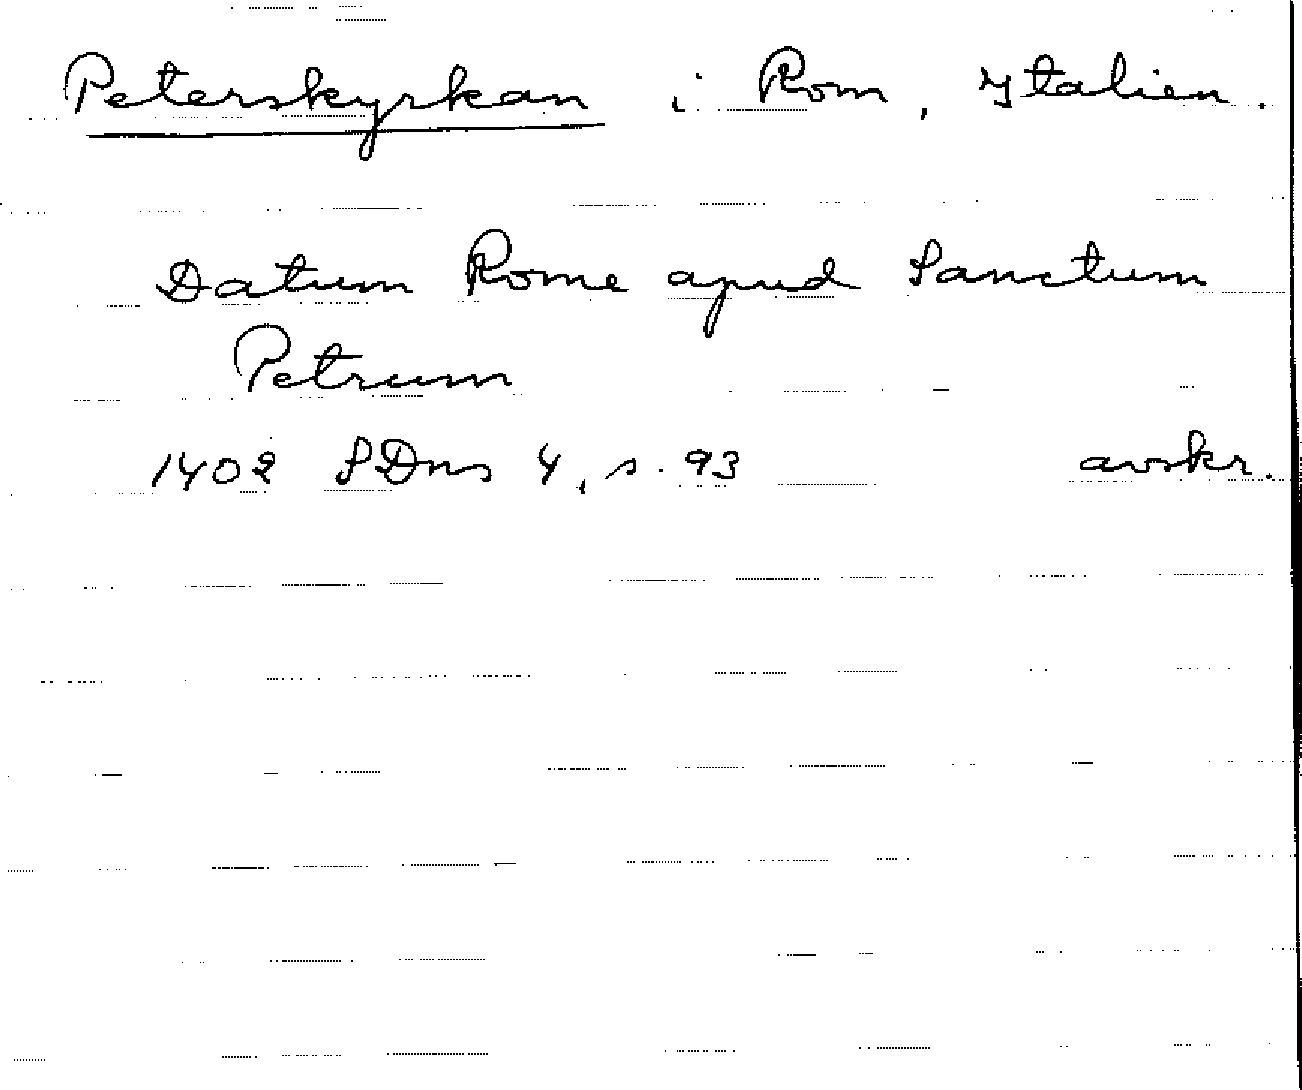 Peterskyrkan i Rom, Italien.
Datum Rome apud Sanctum
Petrum
1402 SDns 4, s. 93 avskr.